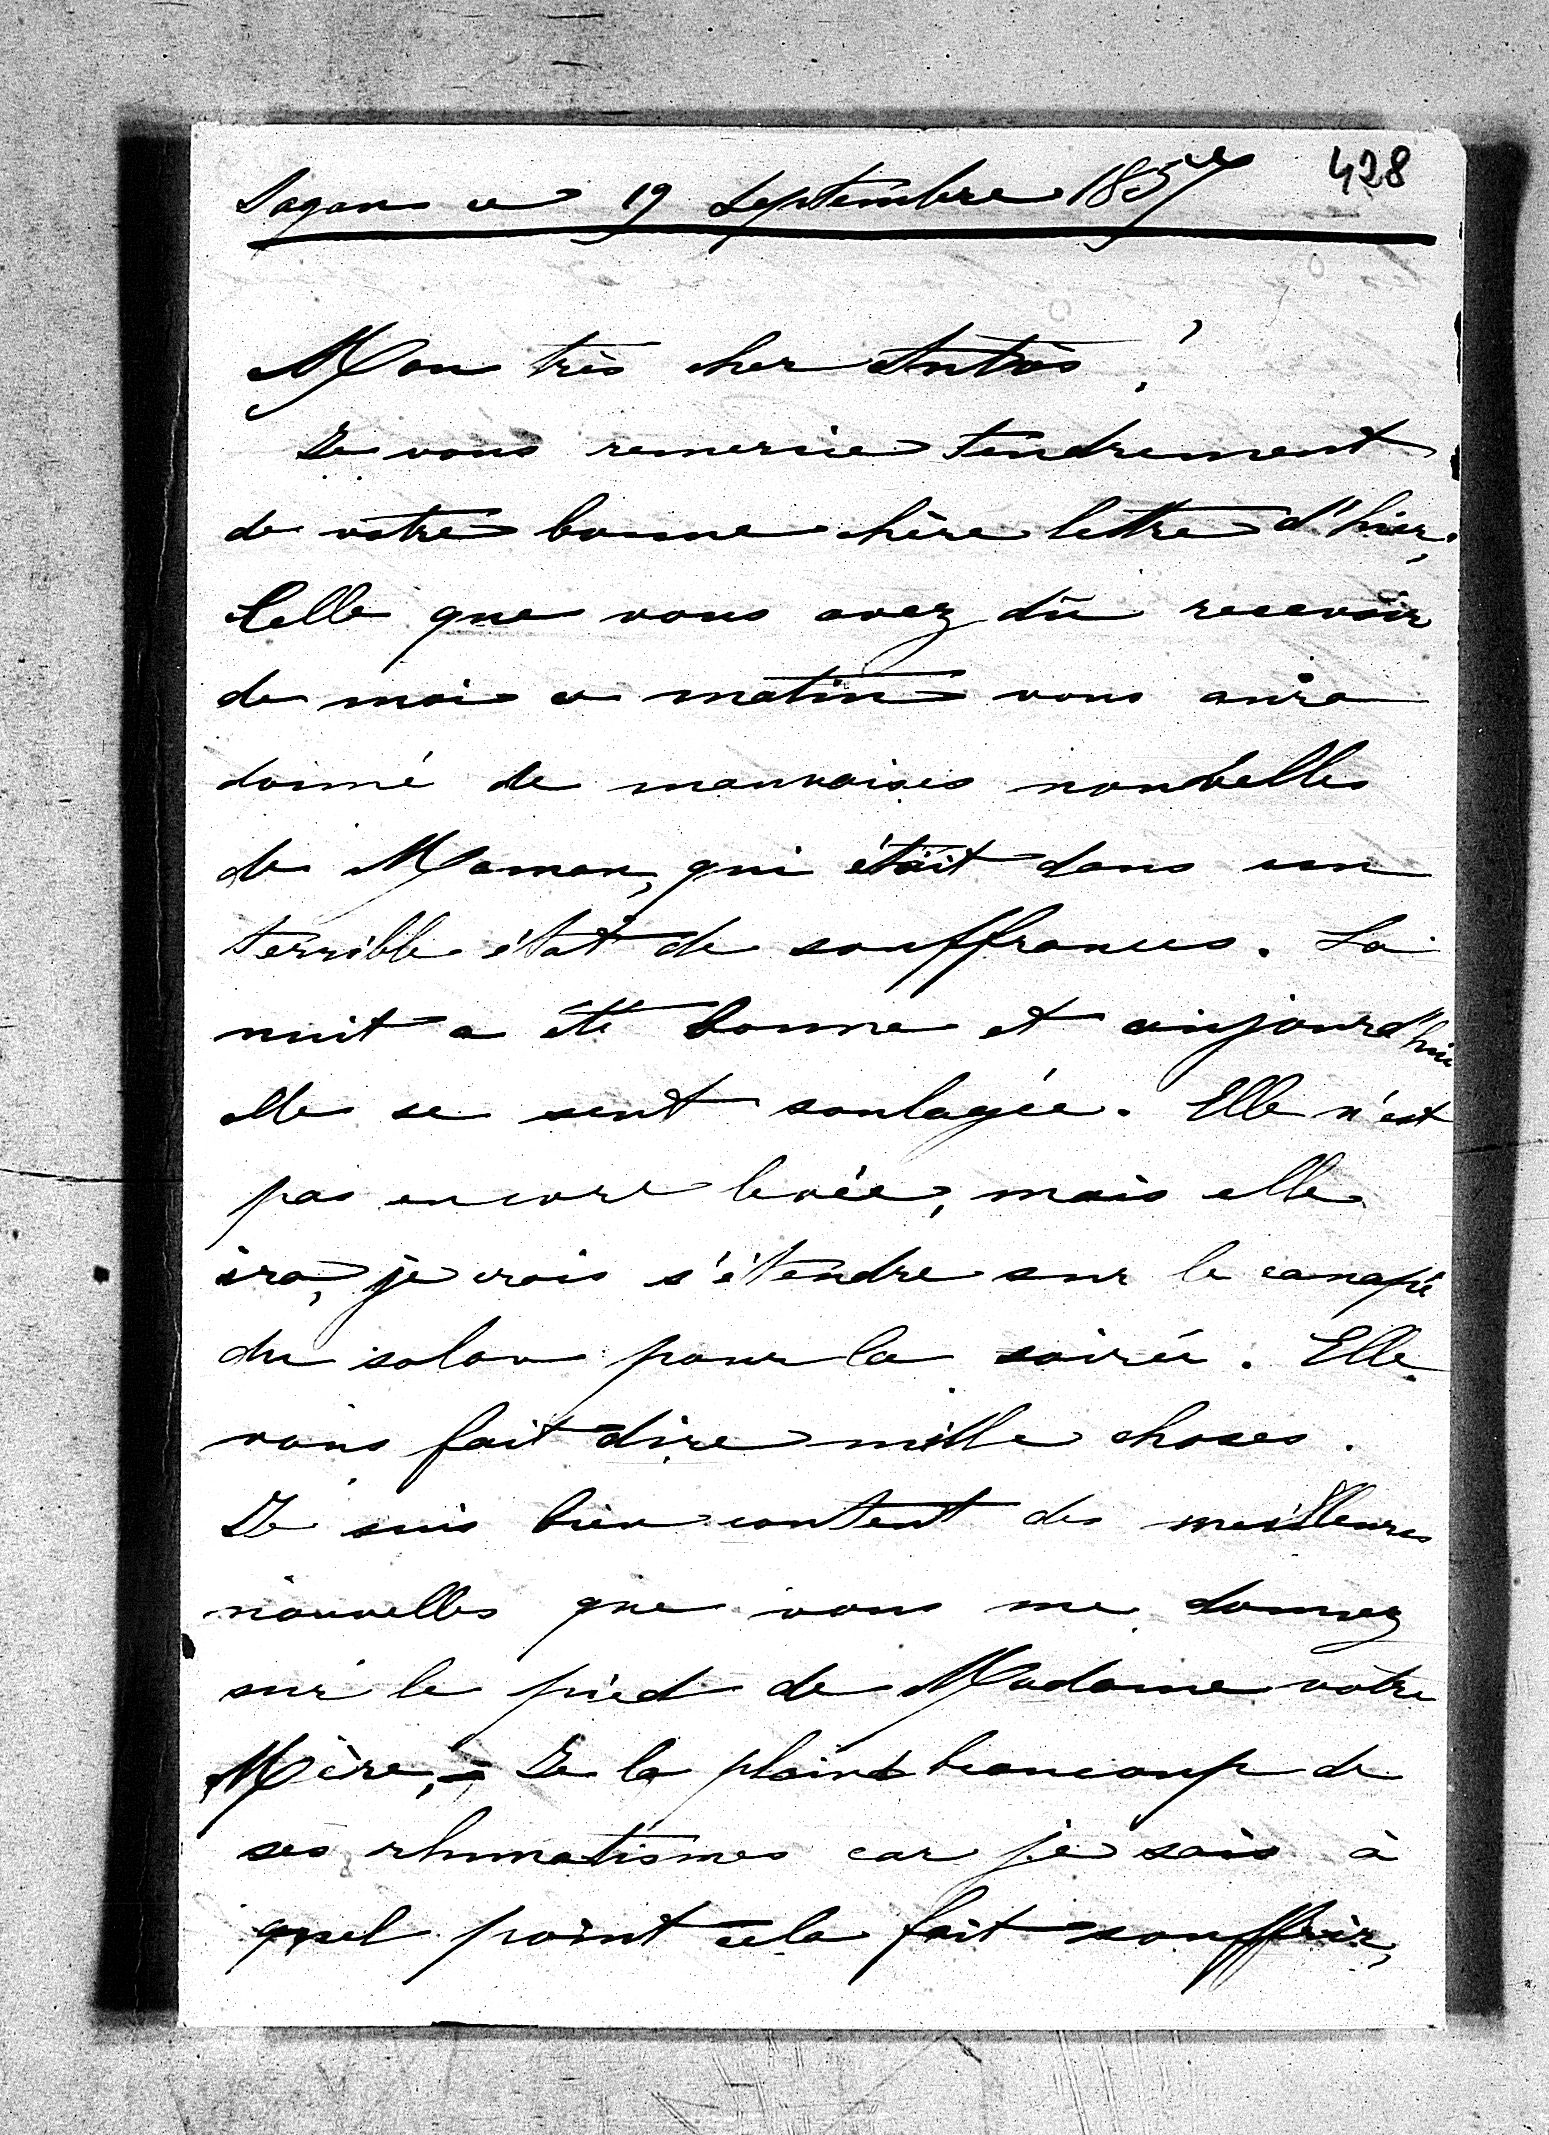 428
Sagan ce 19 Septembre 1857
Mon très cher Antras!
Je vous remercie tendrement
de votre bonne chère lettre d'hier;
Celle que vous avez dû recevoir
de moi ce matin vous aura
donné de mauvaises nouvelles
de Maman, qui était dans un
terrible état de souffrances. La
nuit a été bonne et aujourd'hui
elle se sent soulagée. Elle n'est
pas encore levée, mais elle
ira, je crois s'étendre sur le canapé
du salon pour la soirée. Elle
vous fait dire mille choses.
Je suis bien content des meilleures
nouvelles que vous me donnez
sur le pied de Madame votre
Mère, - Je la plains beaucoup de
ses rhumatismes car je sais à
quel point cela fait souffrir,